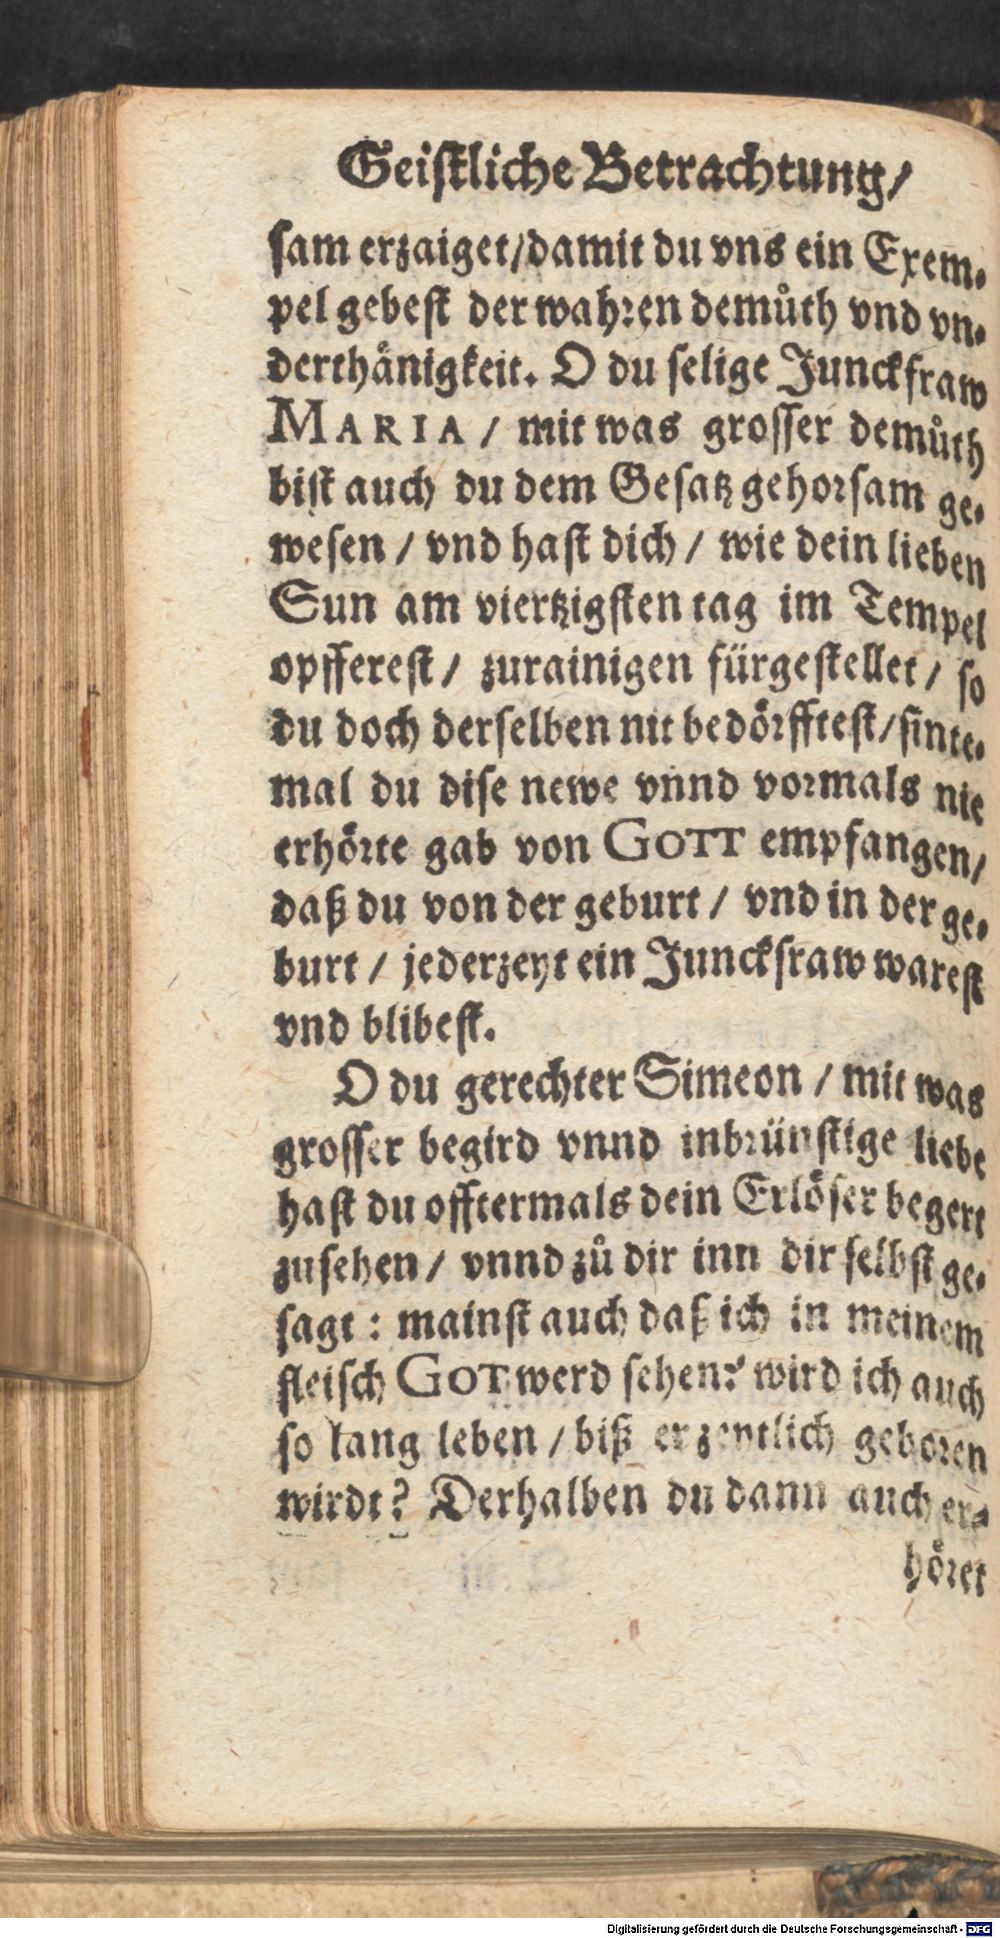 Geistliche Betrachtung/
sam erzaiget/damit du vns ein Exem-
pel gebest der wahren demůth vnd vn-
derthånigkeit. O du selige Junckfraw
MARIA / mit was grosser demůth
bist auch du dem Gesatz gehorsam ge-
wesen / vnd hast dich / wie dein lieben
Sun am viertzigsten tag im Tempel
opfferest / zurainigen fürgestellet / so
du doch derselben nit bedörfftest/sinte-
mal du dise newe vnnd vormals nie
erhörte gab von GOTT empfangen/
daß du von der geburt / vnd in der ge-
burt / jederzeyt ein Junckfraw warest
vnd blibest.
O du gerechter Simeon / mit was
grosser begird vnnd inbrünstige liebe
hast du offtermals dein Erlöser begert
zusehen / vnnd zů dir inn dir selbst ge-
sagt : mainst auch daß ich in meinem
fleisch GOT werd sehen? wird ich auch
so lang leben / biß er zeytlich geboren
wirdt? Derhalben du dann auch er-
höret
Digitalisierung gefördert durch die Deutsche Forschungsgemeinschaft - DFG